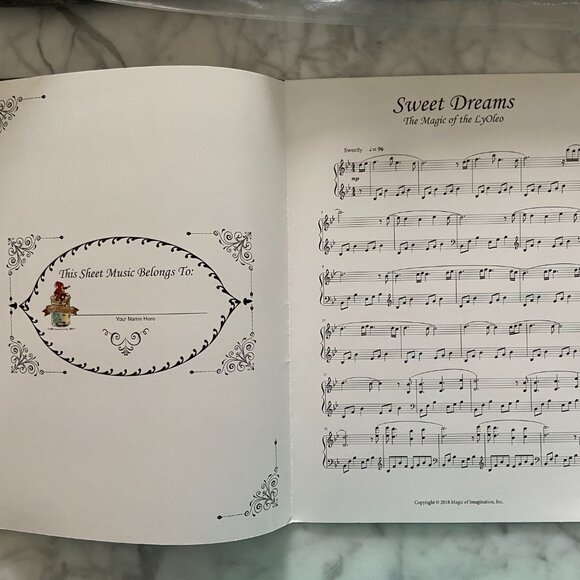 This Sheet Music Belongs To:
Your Name Here
Sweet Dreams
The Magic of the LyOleo
Sweetly ♩= 96
mp
Copyright © 2018 Magic of Imagination, Inc.